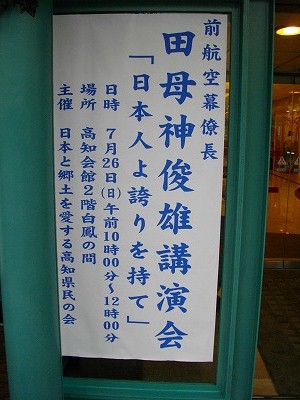 前航空幕僚長
田母神俊雄講演会
「日本人よ誇りを持て」
日時 7月26日(日)午前10時00分～12時00分
場所 高知会館2階白鳳の間
主催 日本と郷土を愛する高知県民の会